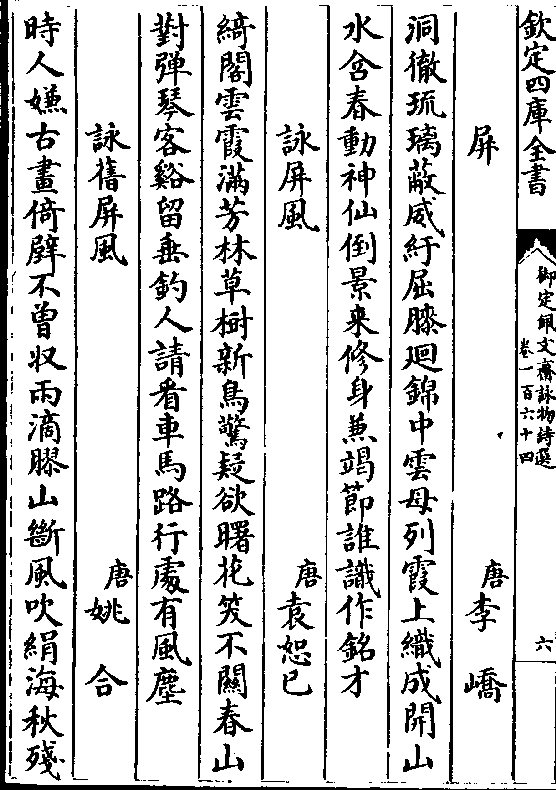 欽定四庫全書
御定佩文齋詠物詩選
卷一百六十四
六
屏
唐李嶠
洞徹琉璃蔽威紆屈膝廻錦中雲母列霞上織成開山
水含春動神仙倒景來修身兼竭節誰識作銘才
詠屏風
唐袁恕已
綺閣雲霞滿芳林草樹新鳥驚疑欲曙花笑不關春山
對彈琴客谿留垂釣人請看車馬路行處有風塵
詠舊屏風
唐姚合
時人嫌古畫倚壁不曾収雨滴膠山斷風吹絹海秋殘